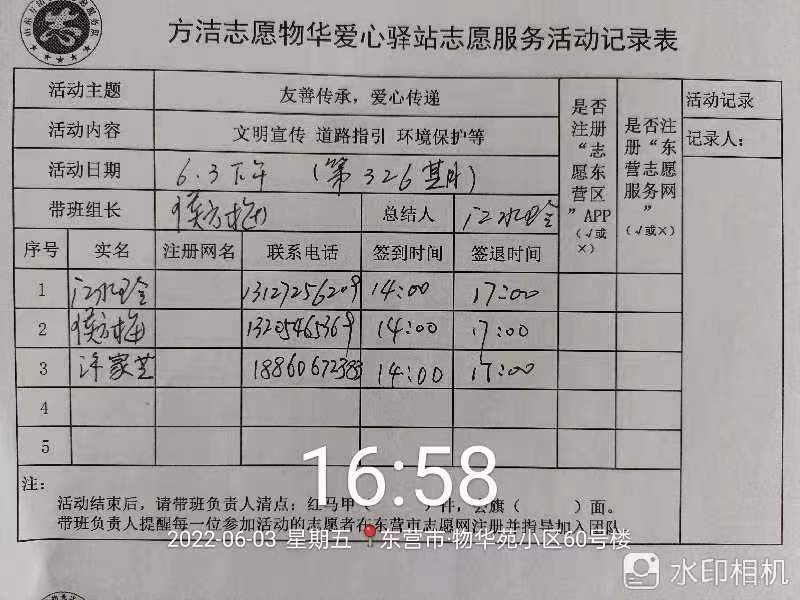 方洁志愿物华爱心驿站志愿服务活动记录表
活动主题 友善传承，爱心传递
活动内容 文明宣传 道路指引 环境保护等
活动日期 6.3下午 (第326期)
带班组长 总结人
是否注册“志愿东营区”APP（√或×）
是否注册“东营志愿服务网”（√或×）
活动记录
记录人:
序号 实名 注册网名 联系电话 签到时间 签退时间
1 13127256209 14:00 17:00
2 13205465369 14:00 17:00
3 许家芝 18860672388 14:00 17:00
4
5
注:
活动结束后，请带班负责人清点: 红马甲（ ）件，会旗（ ）面。
带班负责人提醒每一位参加活动的志愿者在东营市志愿网注册并指导加入团队
16:58
2022-06-03 星期五 东营市·物华苑小区60号楼
水印相机